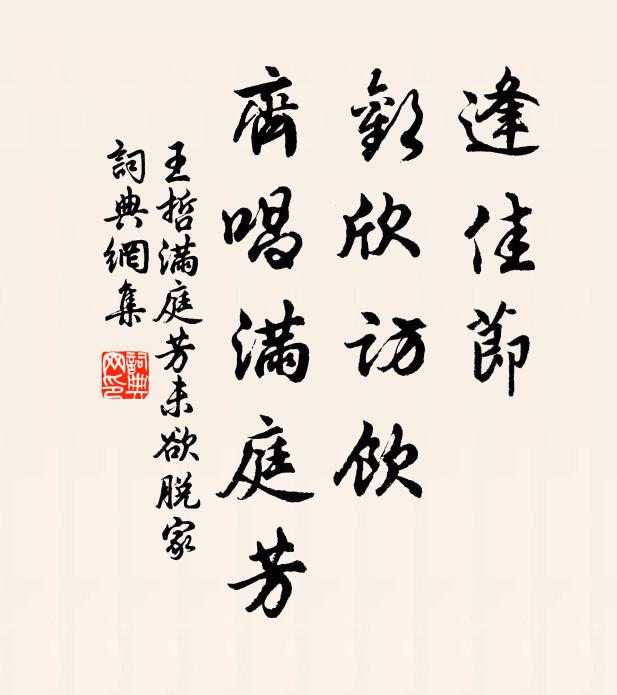 逢佳節
歡欣訪飲
齊唱滿庭芳
王哲滿庭芳未欲脫家
詞典網集
詞典網印